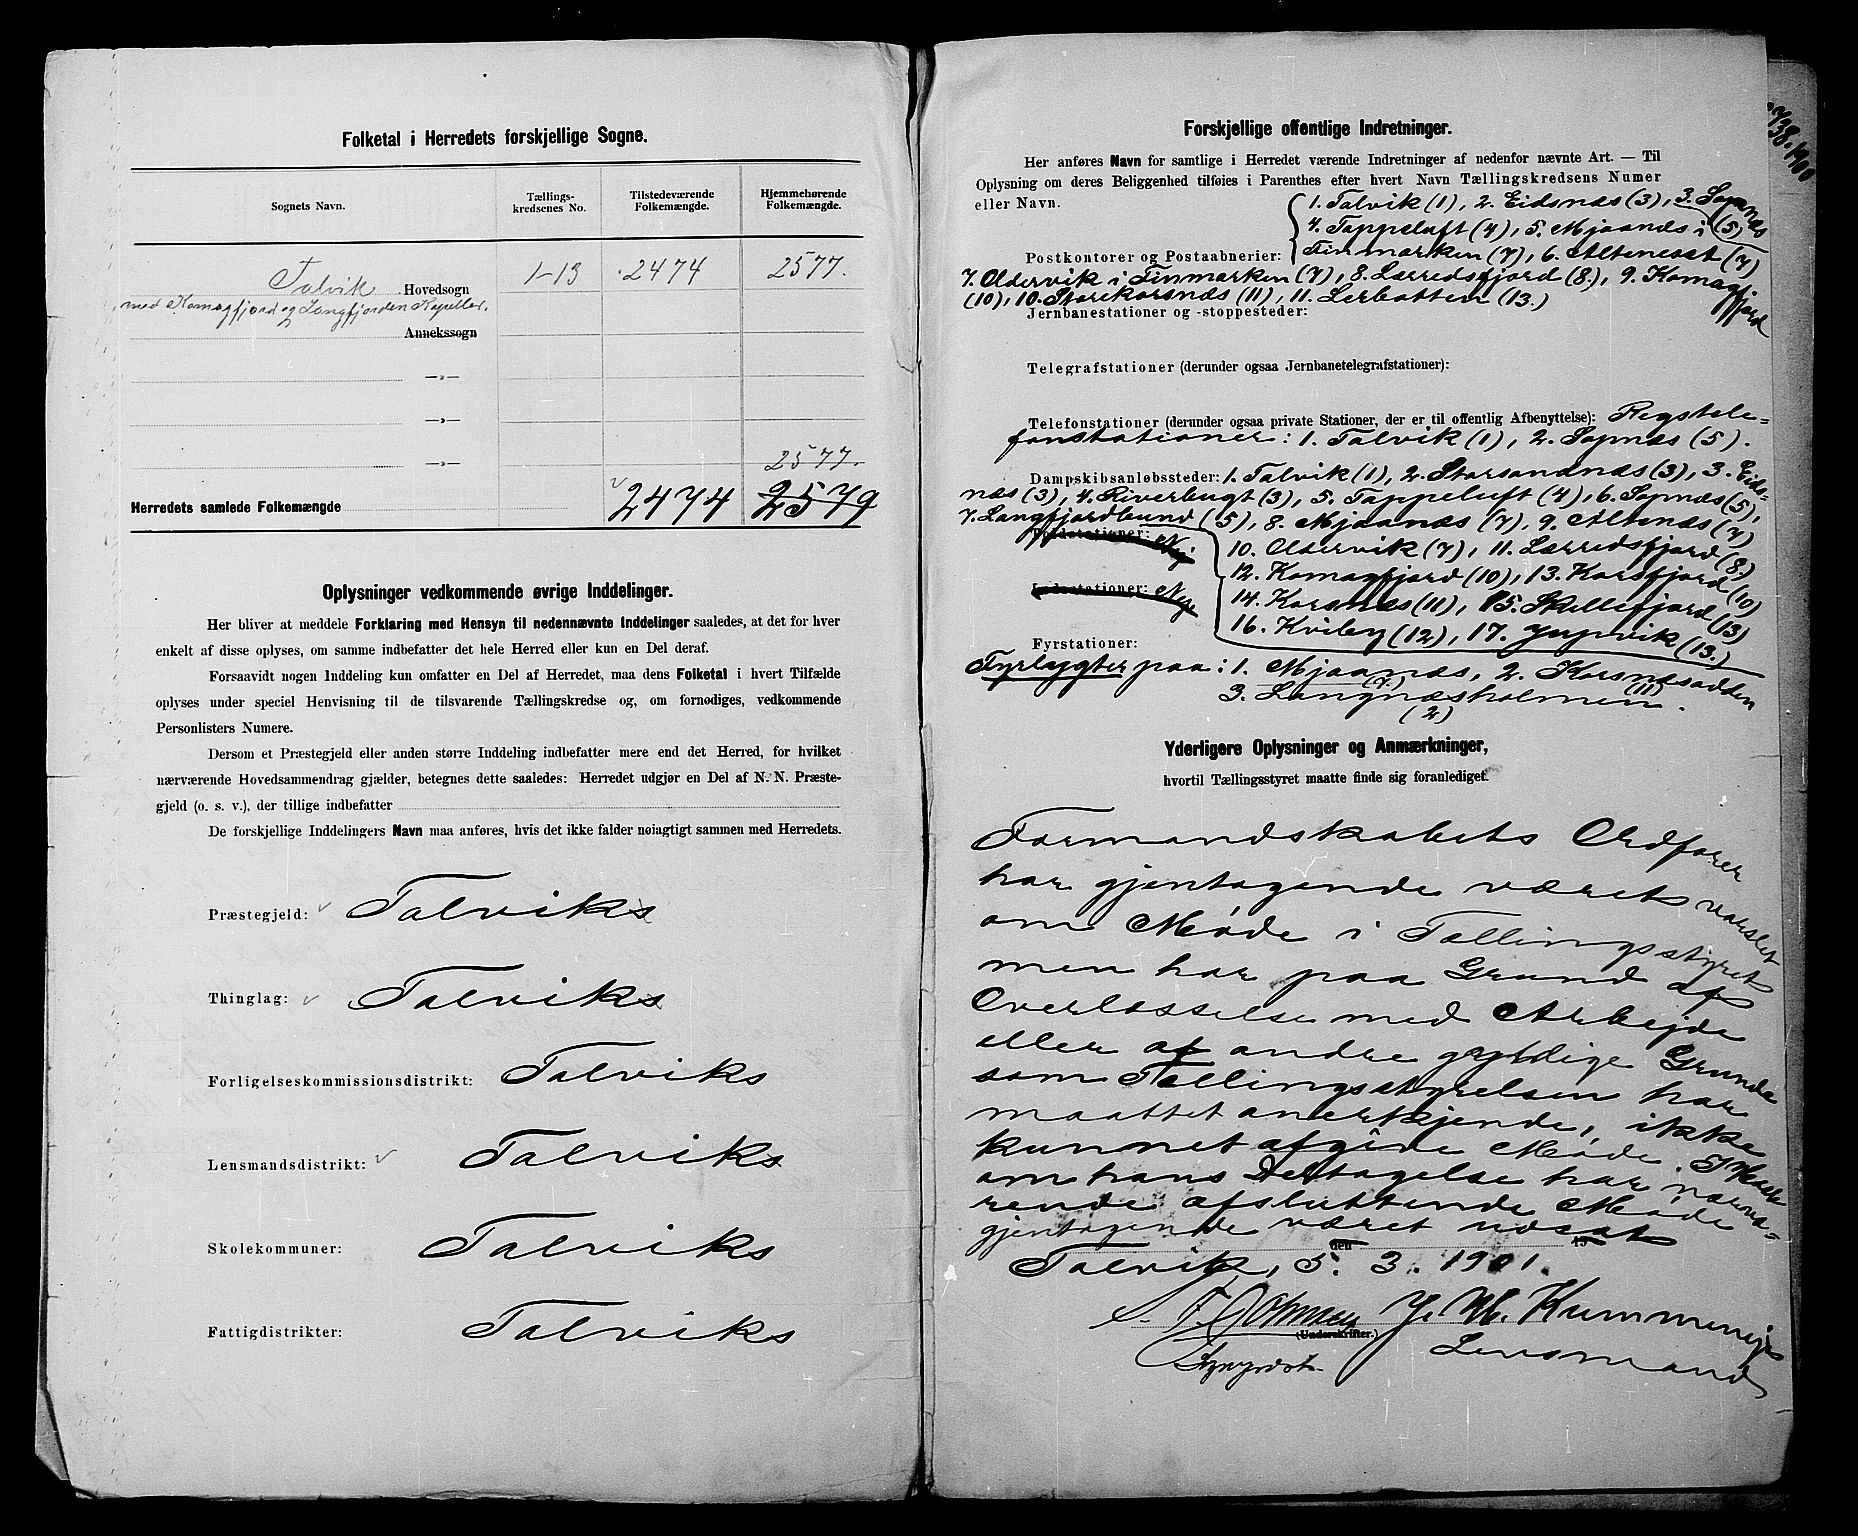 Folketal i Herredets forskjellige Sogne.
Sognets Navn. Tællings-kredsenes No. Tilstedeværende Folkemængde. Hjemmehørende Folkemængde.
Talvik Hovedsogn 1-13 2474 2577.
med Komagfjord og Langfjorden Kapeller.
Annekssogn
—„—
—„—
2577.
—„—
Herredets samlede Folkemængde 2474 2579
Oplysninger vedkommende øvrige Inddelinger.
Her bliver at meddele Forklaring med Hensyn til nedennævnte Inddelinger saaledes, at det for hver
enkelt af disse oplyses, om samme indbefatter det hele Herred eller kun en Del deraf.
Forsaavidt nogen Inddeling kun omfatter en Del af Herredet, maa dens Folketal i hvert Tilfælde
oplyses under speciel Henvisning til de tilsvarende Tællingskredse og, om fornødiges, vedkommende
Personlisters Numere.
Dersom et Præstegjeld eller anden større Inddeling indbefatter mere end det Herred, for hvilket
nærværende Hovedsammendrag gjælder, betegnes dette saaledes: Herredet udgjør en Del af N. N. Præste-
gjeld (o. s. v.), der tillige indbefatter
De forskjellige Inddelingers Navn maa anføres, hvis det ikke falder nøiagtigt sammen med Herredets.
Præstegjeld: Talviks
Thinglag: Talviks
Forligelseskommissionsdistrikt: Talviks
Lensmandsdistrikt: Talviks
Skolekommuner: Talviks
Fattigdistrikter: Talviks
Forskjellige offentlige Indretninger.
Her anføres Navn for samtlige i Herredet værende Indretninger af nedenfor nævnte Art. — Til
Oplysning om deres Beliggenhed tilføies i Parenthes efter hvert Navn Tællingskredsens Numer
eller Navn.
1. Talvik (1), 2. Eidsnæs (3), 3. Sopnæs (5)
4. Tappeluft (4), 5. Mjaanæs i
Postkontorer og Postaabnerier: Finmarken (7), 6. Altenesset (7)
7. Oldervik i Finmarken (7), 8. Lerredsfjord (8.), 9. Komagfjord
(10), 10. Storekorsnæs (11), 11. Lerbotten (13.)
Jernbanestationer og -stoppesteder:
Telegrafstationer (derunder ogsaa Jernbanetelegrafstationer):
Telefonstationer (derunder ogsaa private Stationer, der er til offentlig Afbenyttelse): Rigstele-
fonstationer: 1. Talvik (1), 2. Sopnæs (5).
Dampskibsanløbssteder: 1. Talvik (1), 2. Storsandnæs (3), 3. Eids-
næs (3), 4. Riverbugt (3), 5. Tappeluft (4), 6. Sopnæs (5),
7. Langfjordbund (5), 8. Mjaanæs (7), 9. Altenæs (7)
Lodsstationer: Nei
10. Oldervik (7), 11. Lærredsfjord (8.)
12. Komagfjord (10), 13. Korsfjord (10)
14. Korsnæs (11), 15. Skillefjord (13)
16. Kviby (12), 17. Jupvik (13.)
Fyrstationer:
Fyrlygter paa: 1. Mjaanæs, (7.) 2. Korsnæsodden (11)
3. Langnæsholmen. (2)
Yderligere Oplysninger og Anmærkninger,
hvortil Tællingsstyret maatte finde sig foranlediget.
Formandskabets Ordfører
har gjentagende været varslet
om Møde i Tællingsstyret
men har paa Grund af
Overlæsselse med Arbejde
eller af andre gyldige Grunde
som Tællingsstyrelsen har
maattet anerkjende, ikke
kunnet afgive Møde.
om hans Deltagelse har nærvæ-
rende afsluttende Møde
gjentagende været udsat
den 19
Talvik, 5. 3. 1901.
Kummeneje
(Underskrifter.)
Lensmand